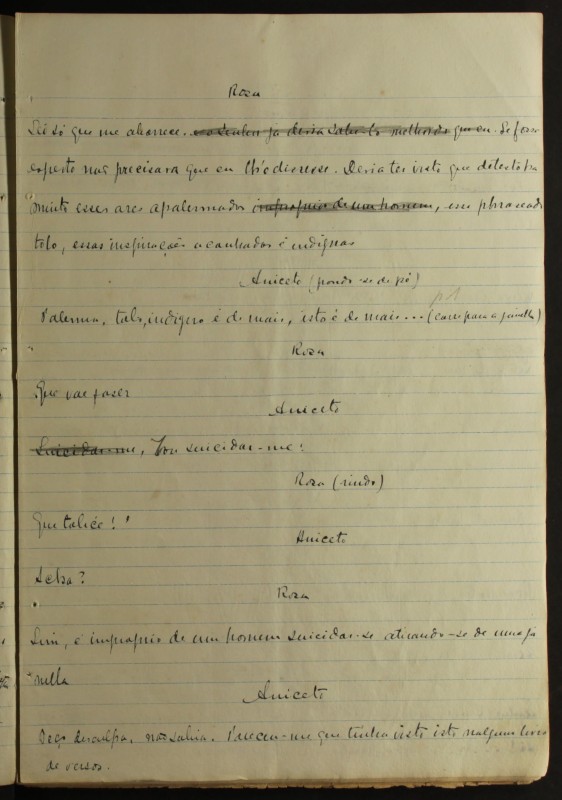 Rosa
Sei só que me aborrece. o senhor já devia sabel-o melhor do que eu. Se fosse
esperto não precisava que eu lh'o dissesse. Devia ter visto que detesto
muito esses ares apalermados improprios de um homem, esse phraseado
tolo, essas inspirações acanhadas é indignas
Aniceto (pondo-se de pé)
Palerma, tolo, indigno é de mais, isto é de mais... (corre para a janella)
Rosa
Que vae fazer
Aniceto
Suicidar-me, Vou suicidar-me!
Rosa (rindo)
Que tolice!!
Aniceto
Acha?
Rosa
Sim, é improprio de um homem suicidar-se atirando-se de uma ja
nella
Aniceto
Peço desculpa, não sabia. Pareceu-me que tinha visto isto nalgum livro
de versos.